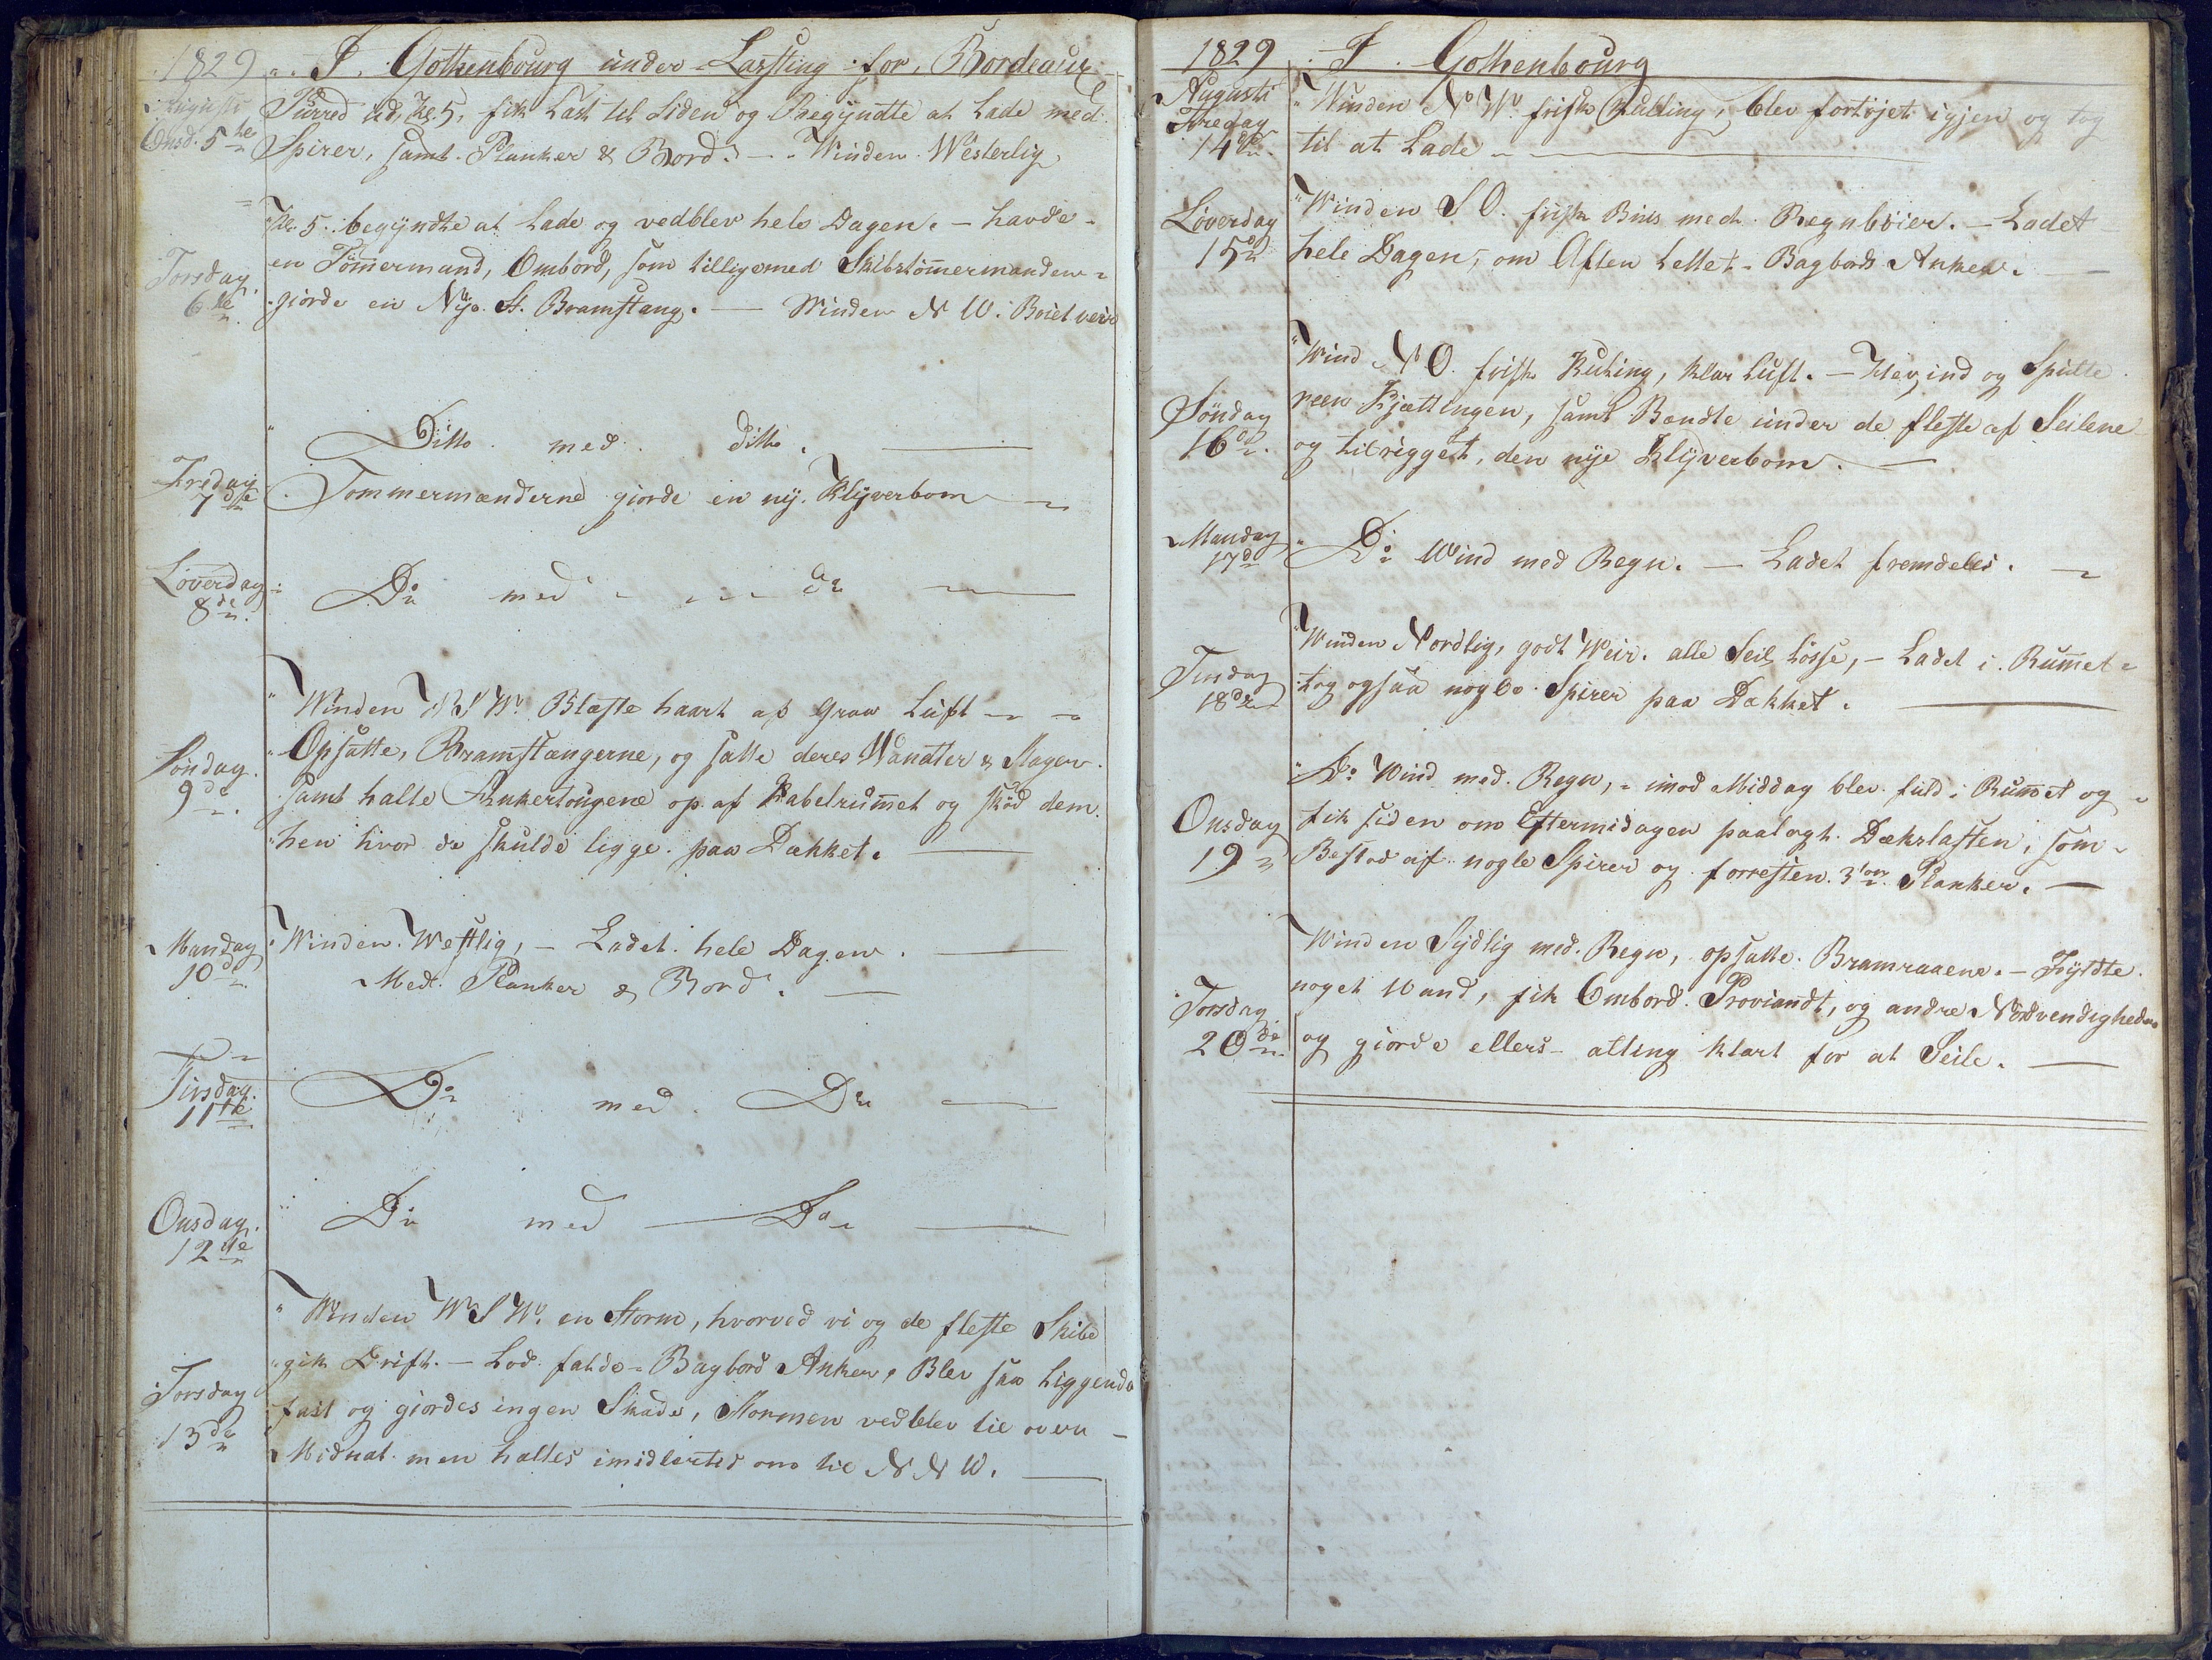 1829 I Gothenbourg under Lastning for Bordeaux
Augusti Purred ud, Kl. 5, fik Last til Siden og Begyndte at Lade med
Onsd. 5te Spirer, samt Planker & Bord. — Winden Westerlig
Kl. 5 begyndte at Lade og vedblev hele Dagen. — havde
en Tömmermand, Ombord, som tilligemed Skibstömmermanden
Torsdag 6te giorde en Nye St. Bramstang. — Winden N W.
Ditto med ditto.
Fredag 7de Tommermænderne giorde en ny Klyverbom
Löverdag 8de Do med do
Winden W S W. Blæste haart af Graa Luft
Opsatte, Bramstængerne, og satte deres Wandter & Stager
Söndag 9de samt halte Ankertougene op af Kabelrummet og sköd dem
hen hvor de skulde ligge paa Dækket.
Mandag 10de Winden Westlig, — Ladet hele Dagen.
Med Planker & Bord.
Tirsdag 11te Do med Do
Onsdag 12te Do med Do
Winden W S W. en Storm, hvorved vi og de fleste Skibe
gik Drift. — Lod falde Bagbord Anker, Blev saa liggende
Torsdag fast og giordes ingen Skade, Stormen vedblev til over
13de Midnat men haltes imidlertid om til N N W.
1829 I Gothenbourg
Augusti Winden N W. frisk Kulling, blev fortöjet igjen og tog
Fredag 14de til at Lade
Löverdag Winden S O. frisk Briis med Regnböier. — Ladet
15de hele Dagen, om Aften lettet Bagbords Anker.
Wind N O. frisk Kuling, klar Luft. — Hev ind og Spulte
Söndag reen Kjættingen, samt Bændte under de fleste af Seilene
16de og tilrigget, den nye Klyverbom.
Mandag 17de Do Wind med Regn. — Ladet fremdeles.
Winden Nordlig, godt Weir. alle Seil lösse, — Ladet i Rummet
Tirsdag 18de tog ogsaa nogle Spirer paa Dækket.
Do Wind med Regn, imod Middag blev fuld i Rummet og
Onsdag fik siden om Eftermidagen paalagt Dækslasten, som
19de Bestod af nogle Spirer og forresten 3 Planker.
Winden Sydlig med Regn, opsatte Bramraaene. — Fyldte
Torsdag noget Wand, fik Ombord Proviandt, og andre Nödvendigheder
20de og giorde ellers alting klart for at Seile.